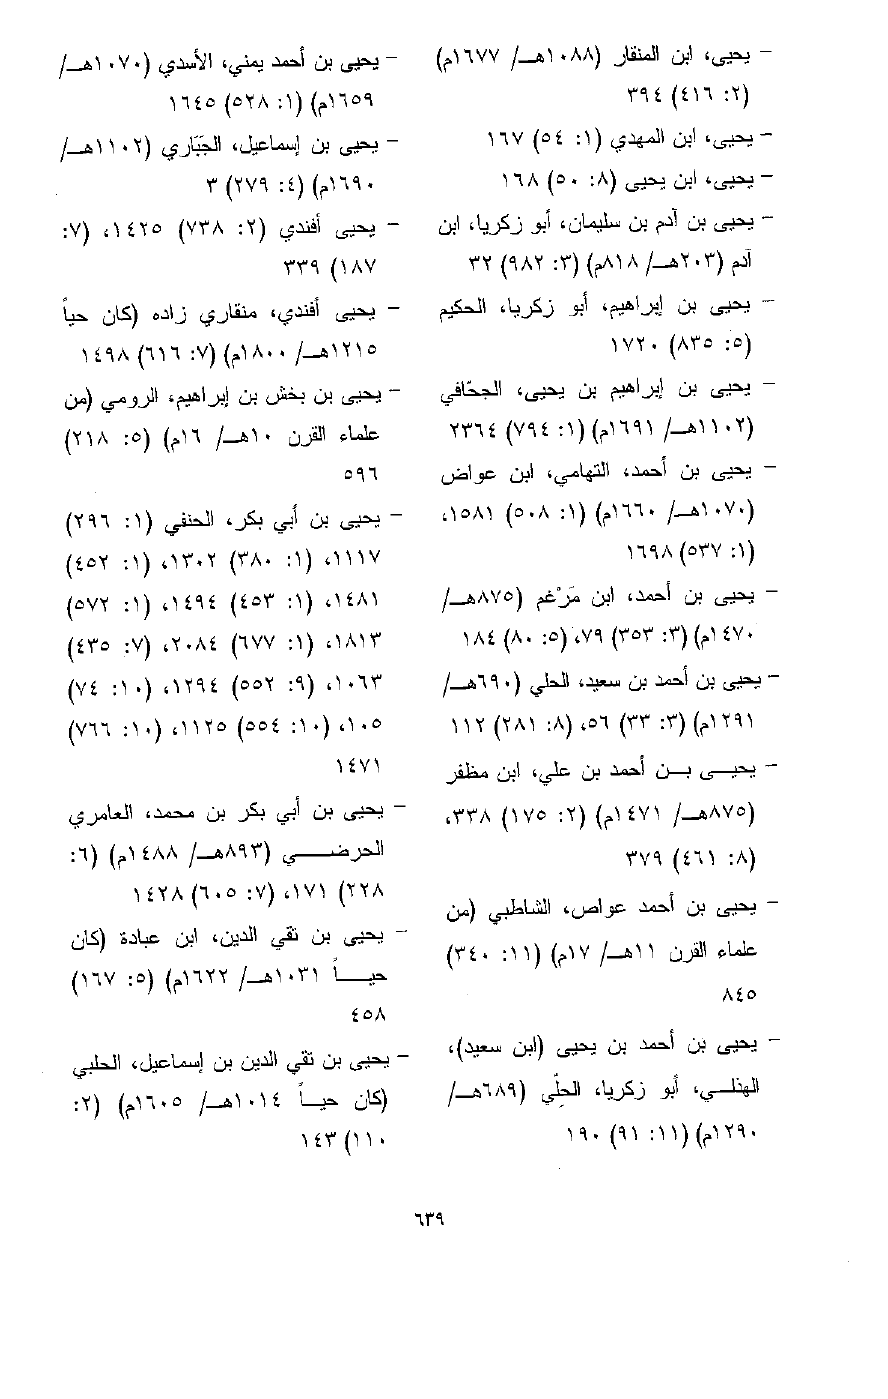 - يحيى، ابن المنقار (١٠٨٨هـ/ ١٦٧٧م)
(٢: ٤١٦) ٣٩٤
- يحيى، ابن المهدي (١: ٥٤) ١٦٧
- يحيى، ابن يحيى (٨: ٥٠) ١٦٨
- يحيى بن آدم بن سليمان، أبو زكريا، ابن
آدم (٢٠٣هـ/ ٨١٨م) (٣: ٩٨٢) ٣٢
- يحيى بن إبراهيم، أبو زكريا، الحكيم
(٥: ٨٣٥) ١٧٢٠
- يحيى بن إبراهيم بن يحيى، الجحّافي
(١١٠٢هـ/ ١٦٩١م) (١: ٧٩٤) ٢٣٦٤
- يحيى بن أحمد، التهامي، ابن عواض
(١٠٧٠هـ/ ١٦٦٠م) (١: ٥٠٨) ١٥٨١،
(١: ٥٣٧) ١٦٩٨
- يحيى بن أحمد، ابن مَرْغم (٨٧٥هـ/
١٤٧٠م) (٣: ٣٥٣) ٧٩، (٥: ٨٠) ١٨٤
- يحيى بن أحمد بن سعيد، الحلي (٦٩٠هـ/
١٢٩١م) (٣: ٣٣) ٥٦، (٨: ٢٨١) ١١٢
- يحيــى بــن أحمد بن علي، ابن مظفر
(٨٧٥هـ/ ١٤٧١م) (٢: ١٧٥) ٣٣٨،
(٨: ٤٦١) ٣٧٩
- يحيى بن أحمد عواص، الشاطبي (من
علماء القرن ١١هـ/ ١٧م) (١١: ٣٤٠)
٨٤٥
- يحيى بن أحمد بن يحيى (ابن سعيد)،
الهذلــي، أبو زكريا، الحلّي (٦٨٩هـ/
١٢٩٠م) (١١: ٩١) ١٩٠
- يحيى بن أحمد يمني، الأسدي (١٠٧٠هـ/
١٦٥٩م) (١: ٥٢٨) ١٦٤٥
- يحيى بن إسماعيل، الجَبّاري (١١٠٢هـ/
١٦٩٠م) (٤: ٢٧٩) ٣
- يحيى أفندي (٢: ٧٣٨) ١٤٢٥، (٧:
١٨٧) ٣٣٩
- يحيى أفندي، منقاري زاده (كان حياً
١٢١٥هـ/ ١٨٠٠م) (٧: ٦١٦) ١٤٩٨
- يحيى بن بخش بن إبراهيم، الرومي (من
علماء القرن ١٠هـ/ ١٦م) (٥: ٢١٨)
٥٩٦
- يحيى بن أبي بكر، الحنفي (١: ٢٩٦)
١١١٧، (١: ٣٨٠) ١٣٠٢، (١: ٤٥٢)
١٤٨١، (١: ٤٥٣) ١٤٩٤، (١: ٥٧٢)
١٨١٣، (١: ٦٧٧) ٢٠٨٤، (٧: ٤٣٥)
١٠٦٣، (٩: ٥٥٢) ١٢٩٤، (١٠: ٧٤)
١٠٥، (١٠: ٥٥٤) ١١٢٥، (١٠: ٧٦٦)
١٤٧١
- يحيى بن أبي بكر بن محمد، العامري
الحرضـــي (٨٩٣هـ/ ١٤٨٨م) (٦:
٢٢٨) ١٧١، (٧: ٦٠٥) ١٤٢٨
- يحيى بن تقي الدين، ابن عبادة (كان
حيــاً ١٠٣١هـ/ ١٦٢٢م) (٥: ١٦٧)
٤٥٨
- يحيى بن تقي الدين بن إسماعيل، الحلبي
(كان حيــاً ١٠١٤هـ/ ١٦٠٥م) (٢:
١١٠) ١٤٣
٦٣٩